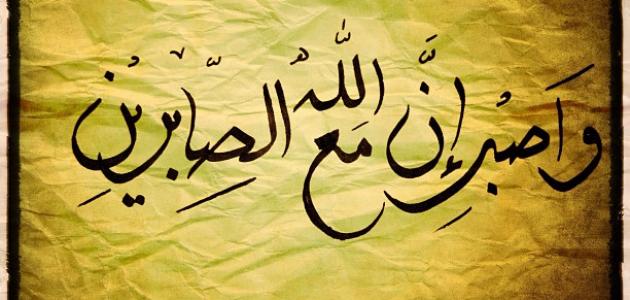 وَاَصْبِر إِنَّ اللَّهُ مَعَ الصَّابِرِيْنِ